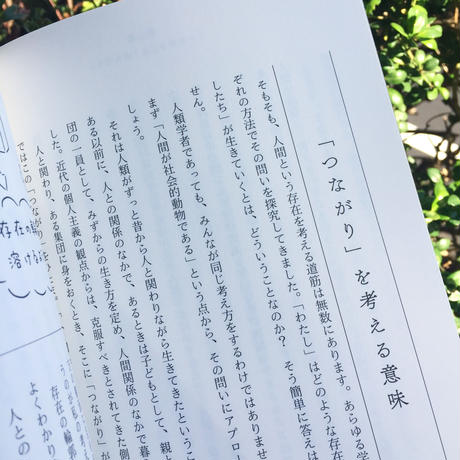 「つながり」を考える意味
そもそも、人間という存在を考える道筋は無数にあります。あらゆる学
ぞれの方法でその問いを探究してきました。「わたし」はどのような存在
したち」が生きていくとは、どういうことなのか？　そう簡単に答えは
せん。
人類学者であっても、みんなが同じ考え方をするわけではありませ
まず「人間が社会的動物である」という点から、その問いにアプロー
しょう。
それは人類がずっと昔から人と関わりながら生きてきたというこ
ある以前に、人との関係のなかで、あるときは子どもとして、親と
団の一員として、みずからの生き方を定め、人間関係のなかで暮
した。近代の個人主義の観点からは、克服すべきとされてきた側
人と関わり、ある集団に身をおくとき、そこに「つながり」が
ではこの「つな
存在の
溶ける
うのが
存在の輪郭
よくわかり
人との